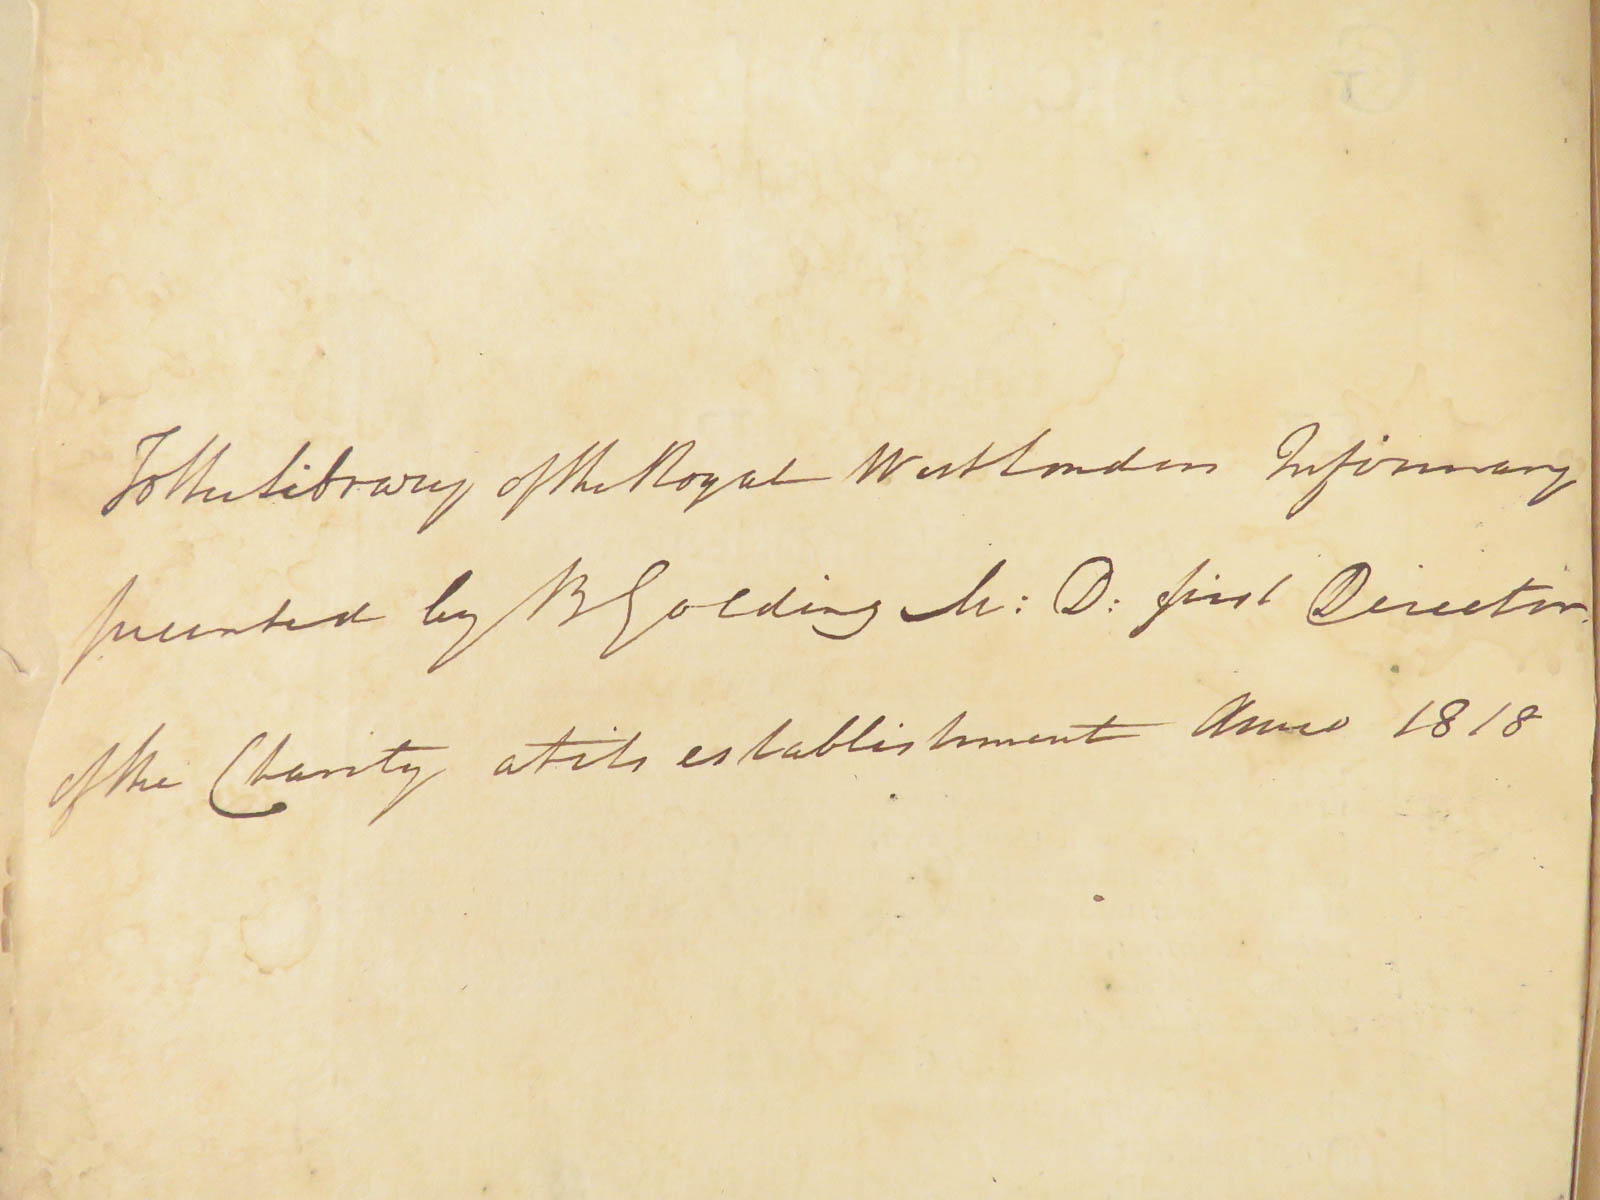 To the Library of the Royal West London Infirmary
presented by B Golding M: D: first Director
of the Charity at its establishment Anno 1818